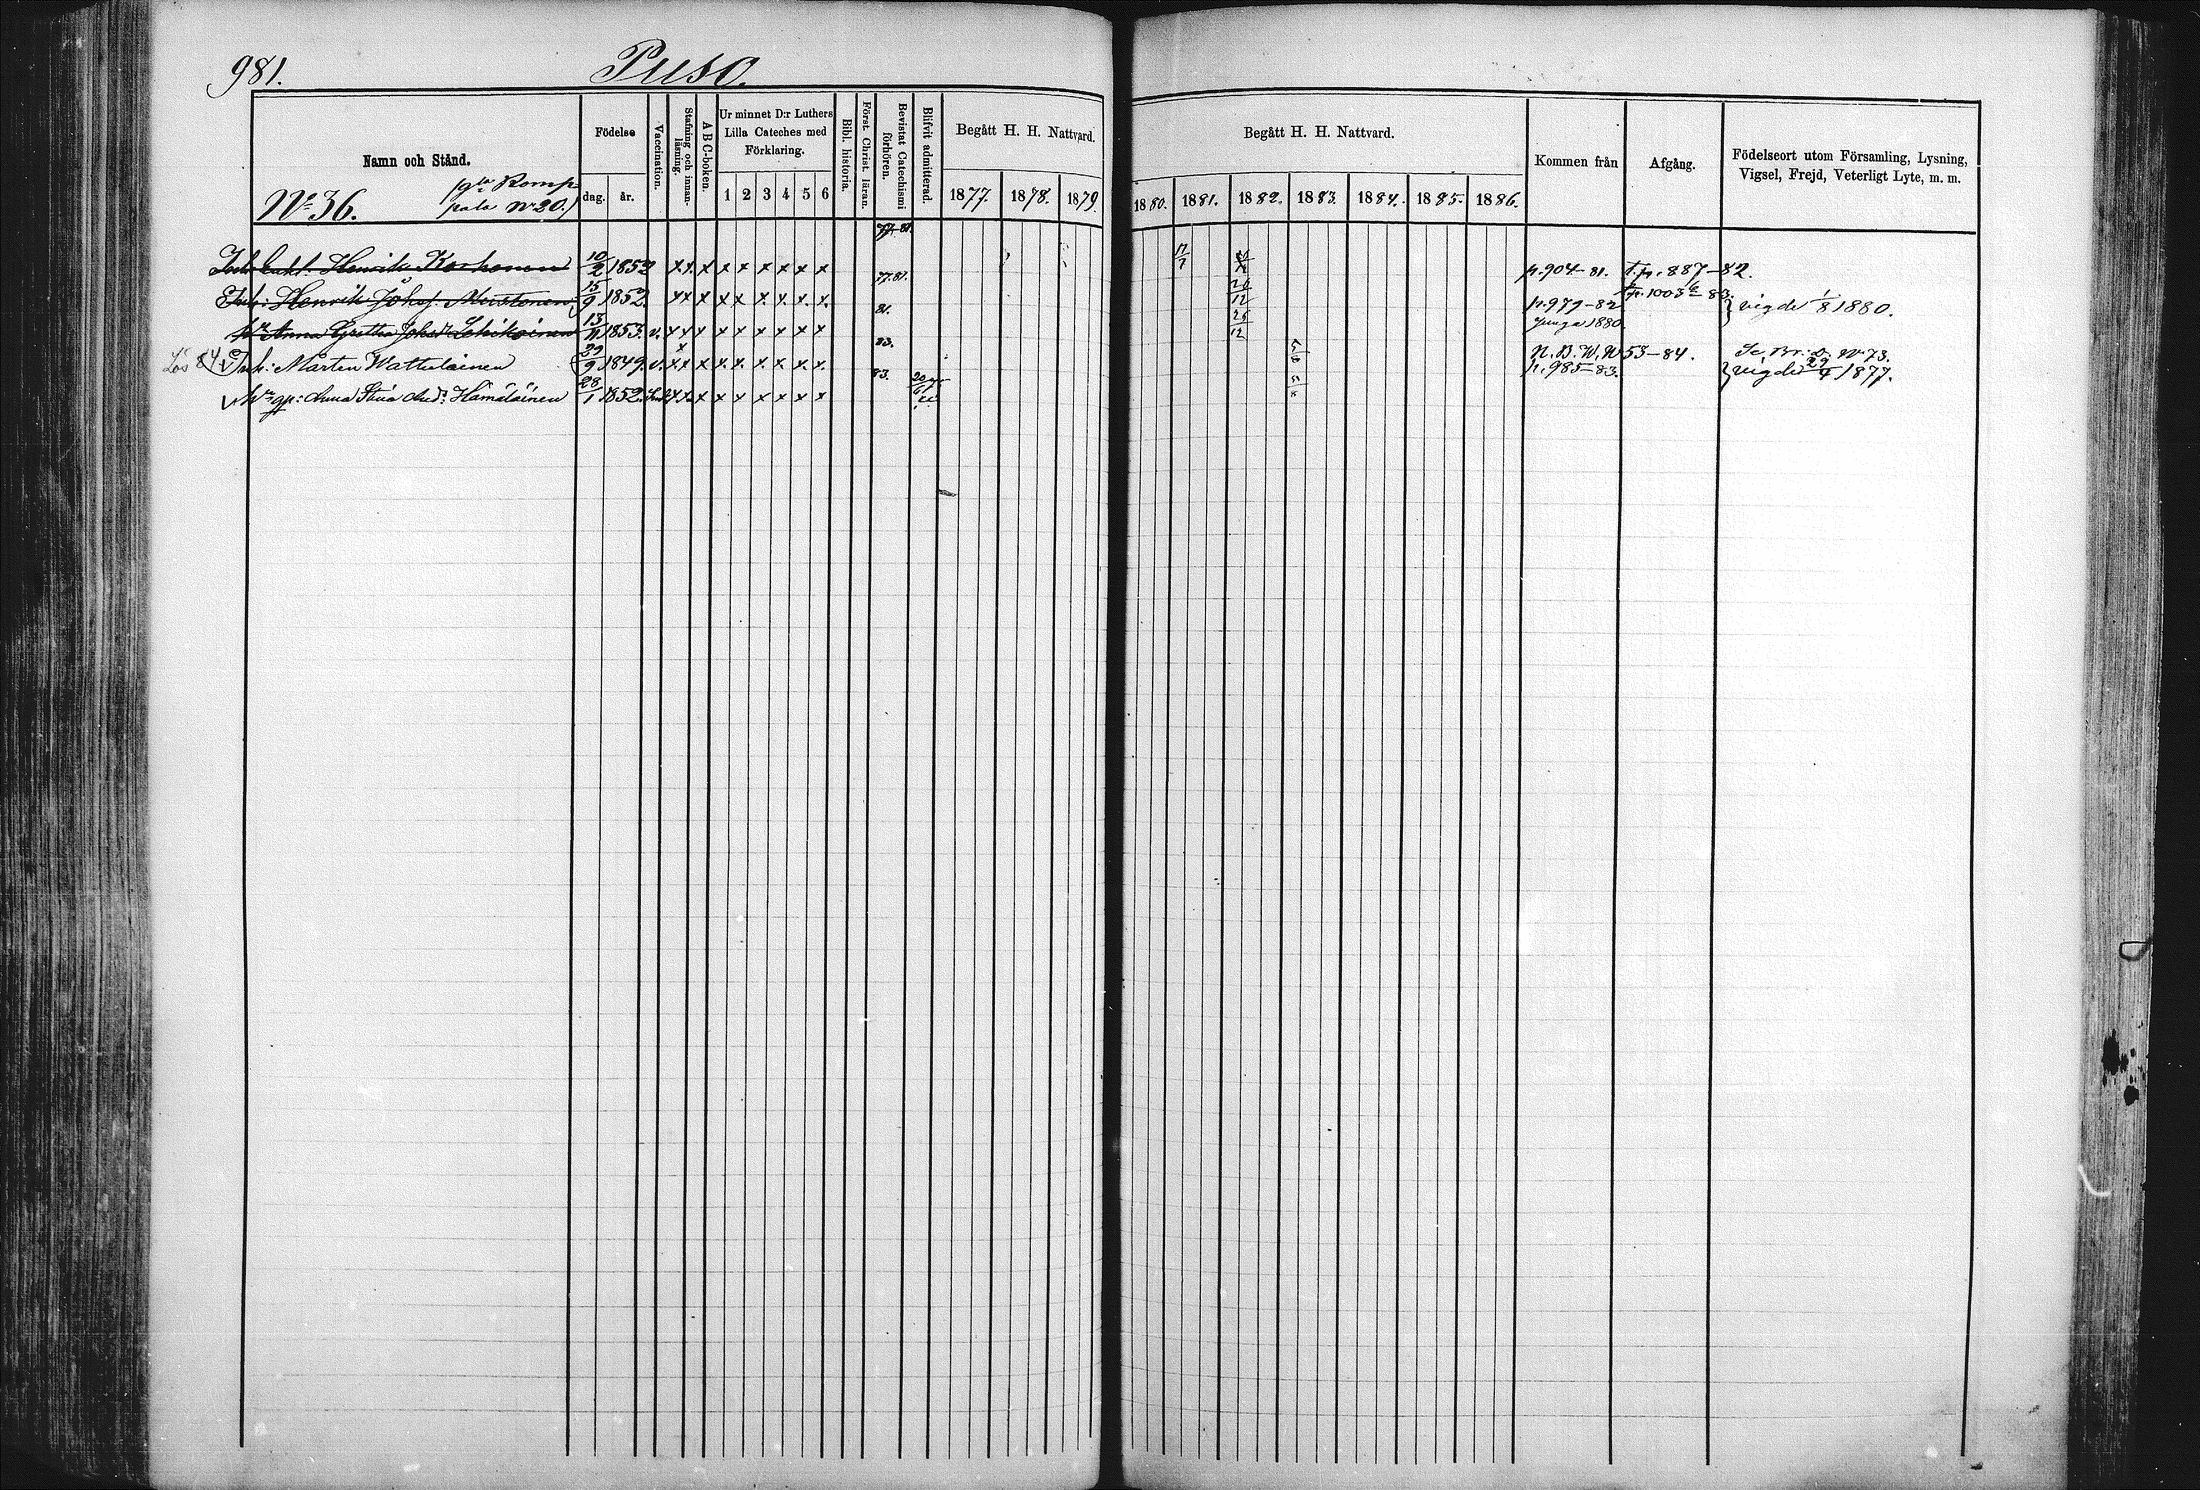 981. Puso.
Namn och Stånd. Födelse Vaccination. Stafning och innanläsning. A B C-boken. Ur minnet D:r Luthers Lilla Cateches med Förklaring. Bibl. historia. Först. Christ. läran. Bevistat Catechismi förhören. Blifvit admitterad. Begått H. H. Nattvard. Begått H. H. Nattvard. Kommen från Afgång. Födelseort utom Församling, Lysning, Vigsel, Frejd, Veterligt Lyte, m. m.
N:o 36. pala N:o 20. dag. år. 1 2 3 4 5 6 1877. 1878. 1879. 1880. 1881. 1882. 1883. 1884. 1885. 1886.
77-81.
Henrik Korhonen 10/2 1852 x x. x x x x x x x 17/7 p. 904-81. T.p. 887-82.
77.81.
Inh: Henrik Johs. Mustonen 15/9 1852. x x x x x x x x x. 26/12 p. 979-82 T.p. 1003 - 83. vigde 1/8 1880.
81.
Anna Gretha Johsdr Lehikoinen 13/11 1853. v. x x x x x x x x x 26/12 1880.
83.
Inh: Mårten Wattulainen 29/9 1849. v. x x x x. x x x x. N. B. W. N 53-84. N:o 73.
p. 985-83. vigde 29/4 1877.
83.
Anna Stina And: Hämäläinen 28/1 1852. x x x x x x x x x